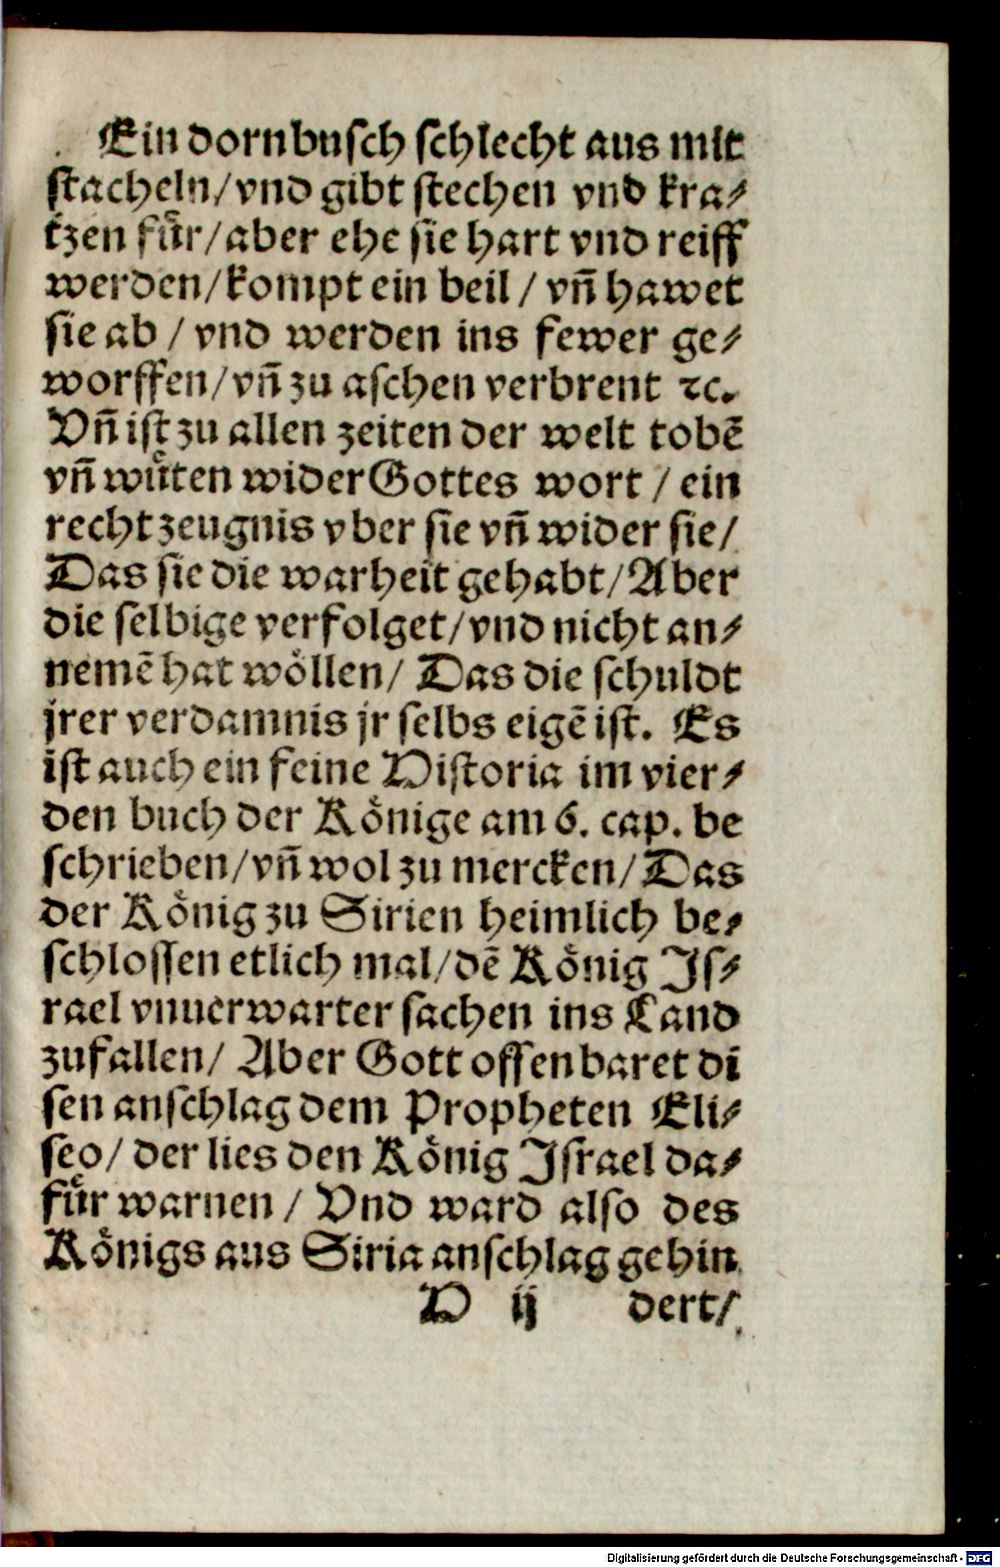 Ein dornbusch schlecht aus mit
stacheln/vnd gibt stechen vnd kra⸗
tzen fuͤr/aber ehe sie hart vnd reiff
werden/kompt ein beil / vn̄ hawet
sie ab / vnd werden ins fewer ge⸗
worffen/vn̄ zu aschen verbrent ꝛc.
Vn̄ ist zu allen zeiten der welt tobē
vn̄ wuͤten wider Gottes wort / ein
recht zeugnis vber sie vn̄ wider sie/
Das sie die warheit gehabt/Aber
die selbige verfolget/vnd nicht an⸗
nemē hat woͤllen/ Das die schuldt
jrer verdamnis jr selbs eigē ist. Es
ist auch ein feine Historia im vier⸗
den buch der Koͤnige am 6. cap. be
schrieben/vn̄ wol zu mercken/Das
der Koͤnig zu Sirien heimlich be⸗
schlossen etlich mal/dē Koͤnig Is⸗
rael vnuerwarter sachen ins Land
zufallen/ Aber Gott offenbaret di
sen anschlag dem Propheten Eli⸗
seo/ der lies den Koͤnig Israel da⸗
fuͤr warnen / Vnd ward also des
Koͤnigs aus Siria anschlag gehin
H ij dert/
Digitalisierung gefördert durch die Deutsche Forschungsgemeinschaft - DFG